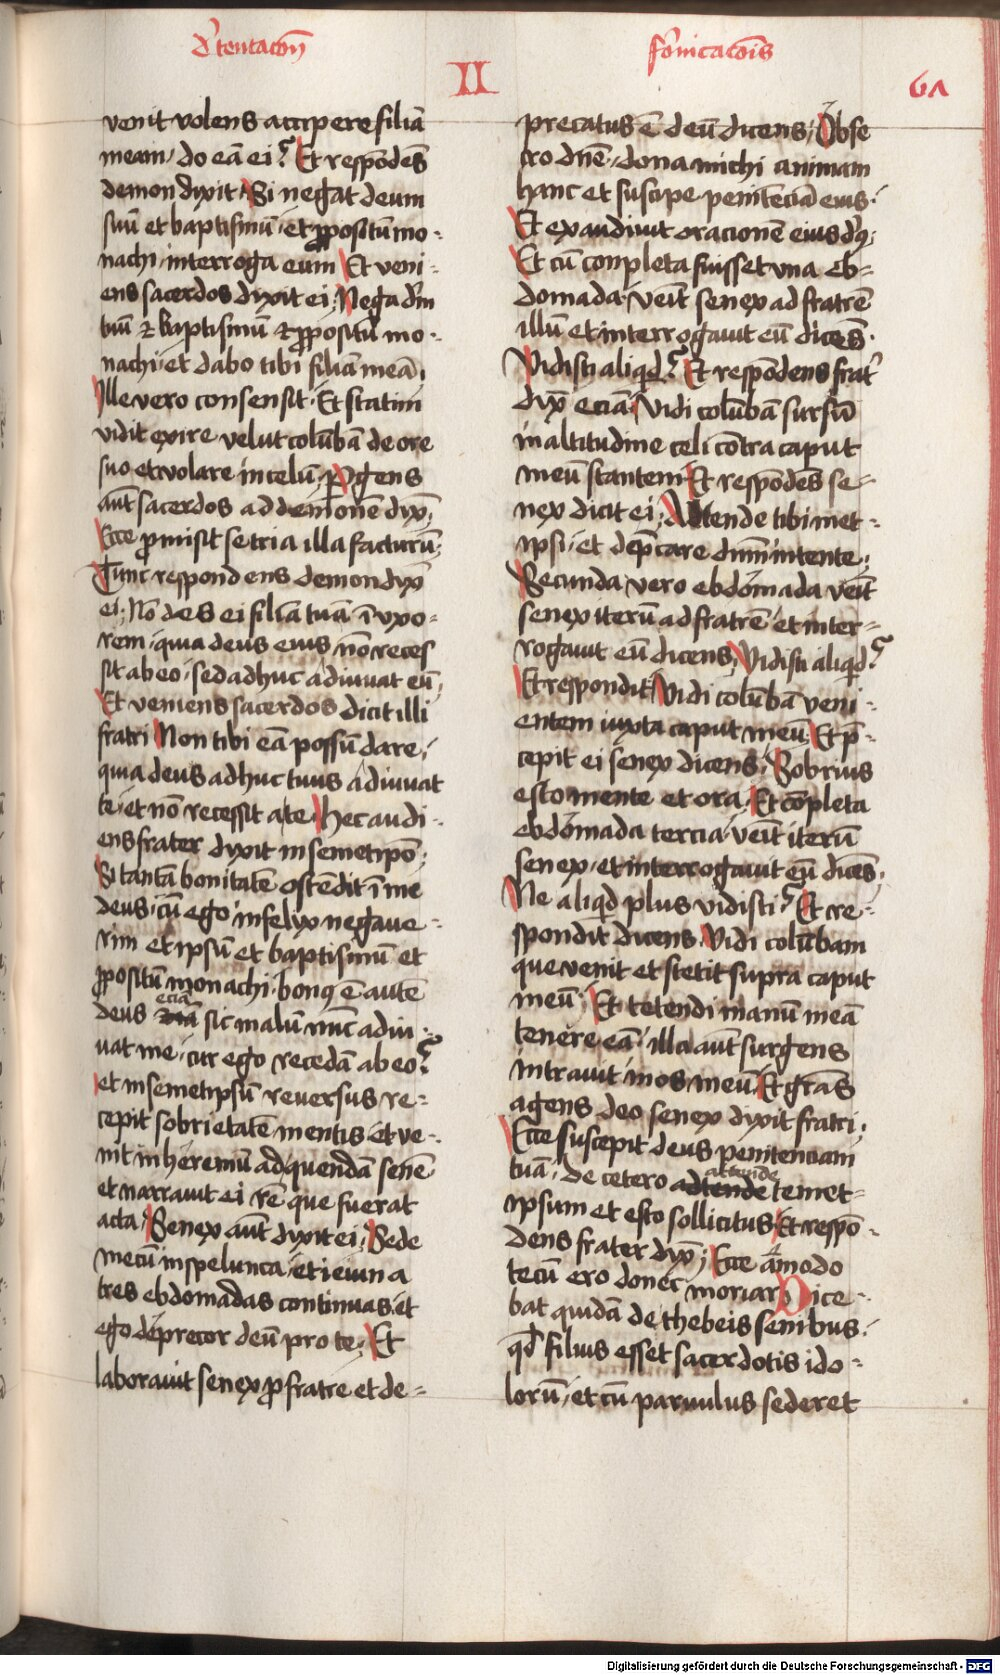 d' tentacōn
II
forīcacōis
61
venit volens accipere filiā
meam · do eā ei? Et respōdēs
demon dixit Si negat deum
suū et baptismū · et ꝓpositū mo-
nachi · interroga eum Et veni-
ens sacerdos dixit ei · Nega dm̄
tuū ⁊ baptismū ⁊ ꝓpositū mo-
nachi · et dabo tibi filiā meā ·
Ille vero consensit · Et statim
vidit exire velut colūbā de ore
suo et volare in celū · Pergens
aūt sacerdos ad demonē dyx̄ ·
Ecce ꝓmisit se tria illa facturū ·
Tunc respondens demon dyx̄
ei · Nō des ei filiā tuā ī uxo-
rem · quia deus eius nō reces
sit ab eo · sed adhuc adiuuat eū ·
Et veniens sacerdos dicit illi
fratri Non tibi eā possū dare ·
quia deus adhuc tuus adiuuat
te · et nō recessit a te · Hec audi-
ens frater dyxit in semetipō ·
Si tantā bonitatē ostēdit ī me
deus · cū ego infelyx negaue-
rim et ipsū et baptismū et
ꝓpositū monachi · bonꝰ ē autē
deus eciā sic malū nūc adiu-
uat me · cur ego recedā ab eo?
et in semetipsū reuersus re-
cepit sobrietatē mentis · et ve-
nit in heremū ad quendā senē
et narrauit ei rē que fuerat
acta · Senex aūt dyxit ei · Sede
mecū in spelunca · et ieiuna
tres ebdomadas continuas · et
ego deprecor deū pro te · Et
laborauit senex ꝓ fratre et de-
precatus ē deū dicens · Obse
cro dn̄e · dona michi animam
hanc et suscipe penitēciā eius ·
Et exaudiuit oracionē eius dꝰ ·
Et cū completa fuisset una eb-
domada · veīt senex ad fratrē
illū et interrogauit eū dicēs ·
Vidisti aliqd? Et respōdens frat'
dyx̄ eciā · Vidi colūbā sursū
in altitudine celi cōtra caput
meū stantem · Et respōdēs se-
nex dicit ei · Attende tibi met-
ipsi · et dep̄care dm̄ intente ·
Secunda vero ebdōmada veīt
senex iterū ad fratrē et inter-
rogauit eū dicens · Vidisti aliqd?
Et respondit Vidi colūbā veni-
entem iuxta caput meū · Et p̄-
cepit ei senex dicens · Sobrius
esto mente et ora · Et cōpleta
ebdōmada tercia · veīt iterū
senex · et interrogauit eū dicēs ·
Ne aliqd plus vidisti? Et re-
spondit dicens · Vidi colūbam
que venit et stetit supra caput
meū · Et tetendi manū meā
tenere eā · illa aūt surgens
intrauit in os meū · Et grās
agens deo senex dyxit fratri ·
Ecce suscepit deus penitenciam
tuā · de cetero attende temet-
ipsum et esto sollicitus · Et respō-
dens frater dyx̄ · Ecce āmodo
tecū ero donec moriar Dice-
bat quidā de thebeis senibus ·
qd filius esset sacerdotis ido-
lorū · et cū paruulus sederet
Digitalisierung gefördert durch die Deutsche Forschungsgemeinschaft - DFG